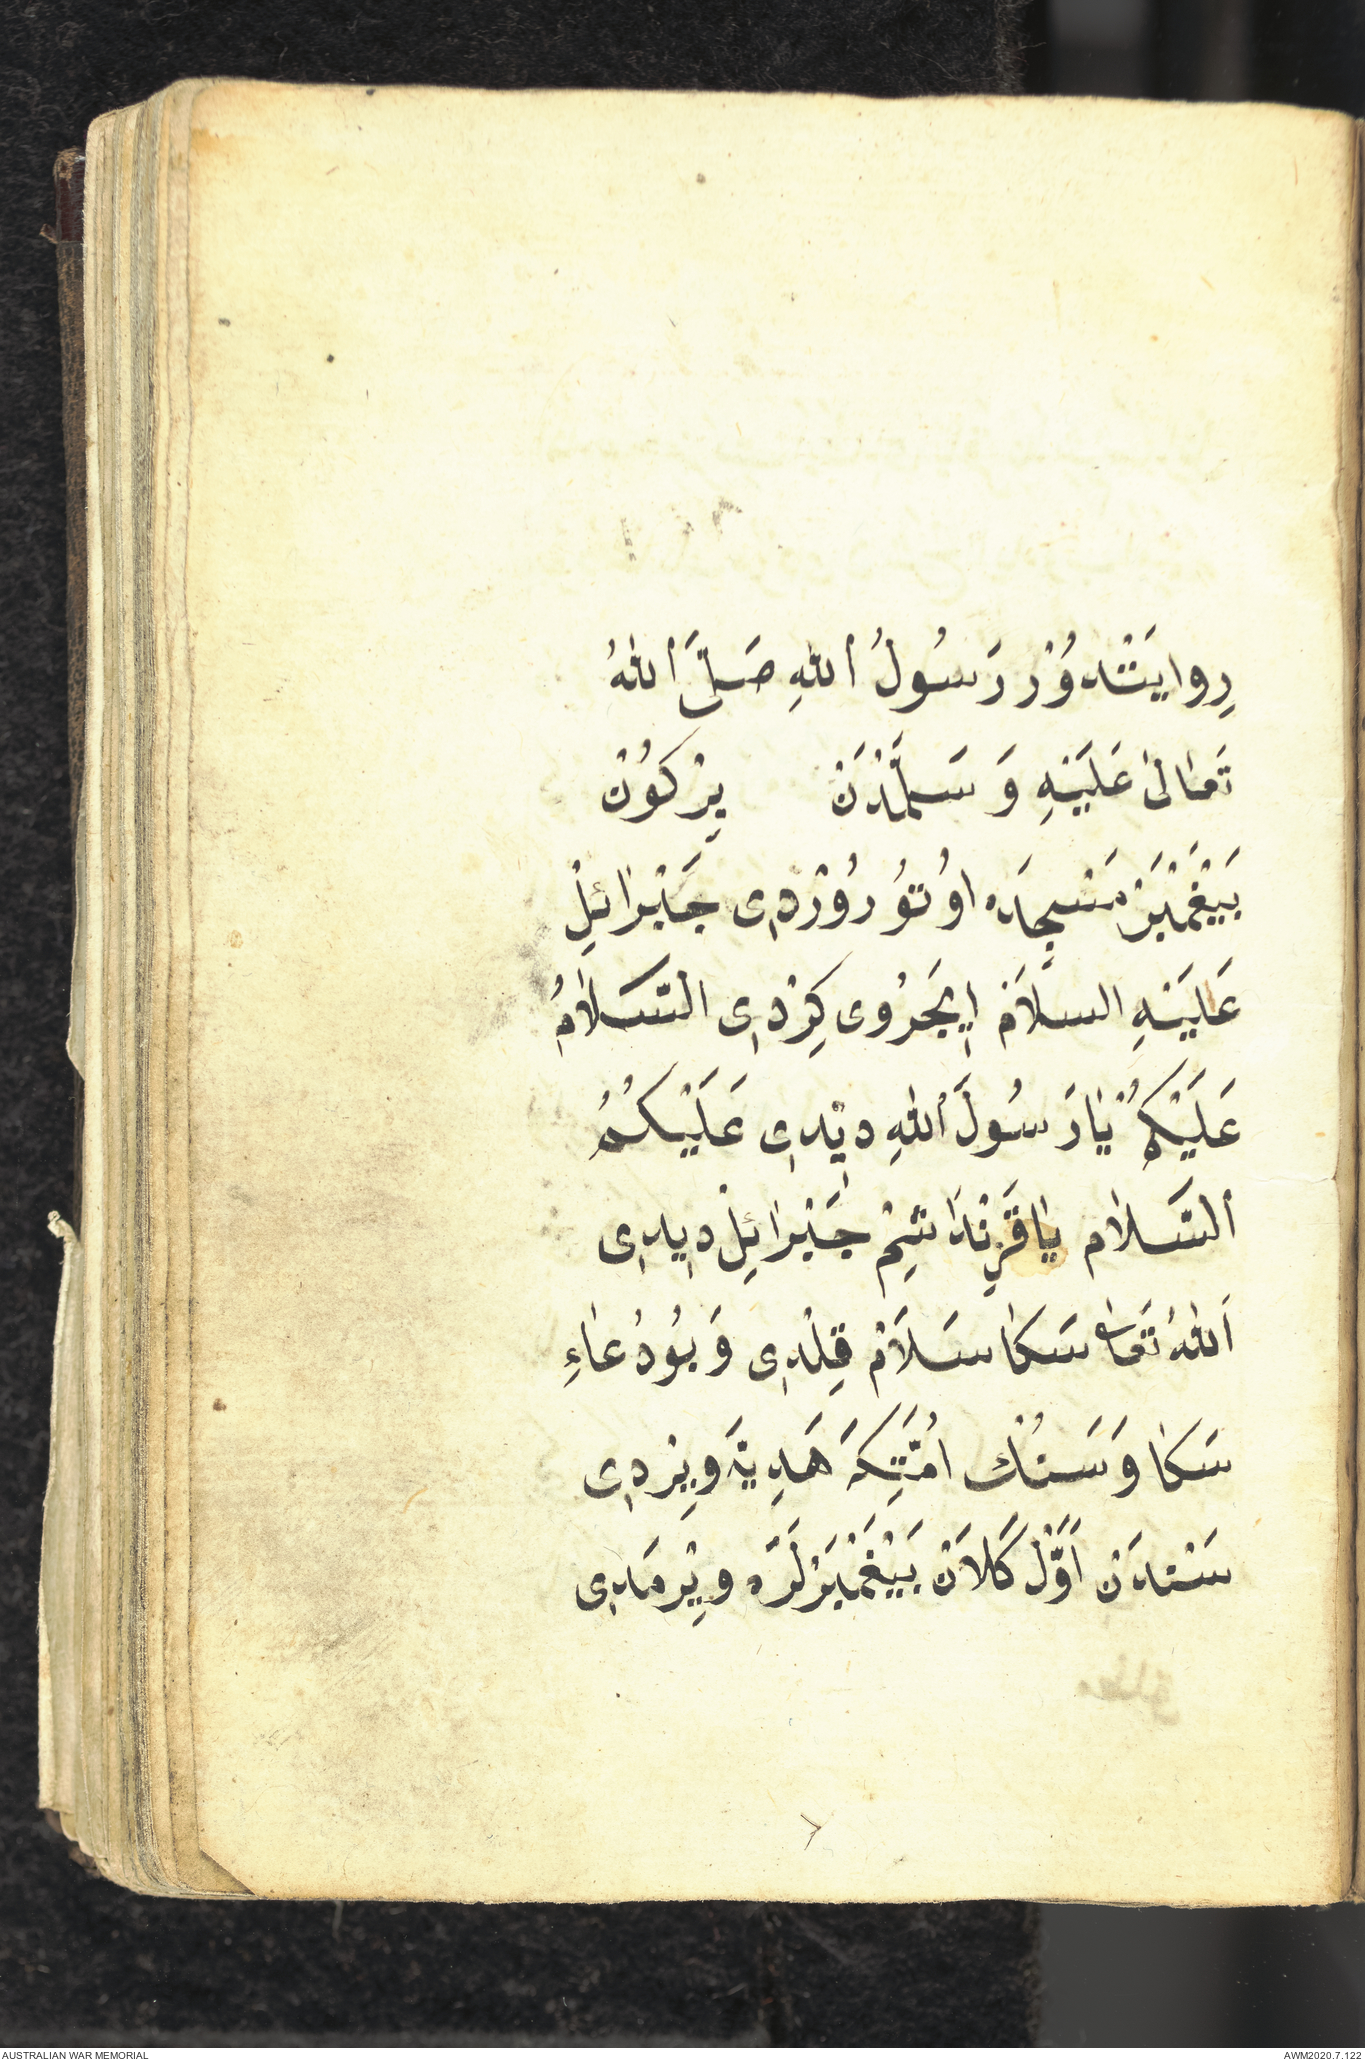 رِوايَتْدَه دُوْر رَسُولُ اللهِ صَلَّى اللهُ
تَعَالىٰ عَلَيْهِ وَ سَلَّمْدَنْ بِرْ كُوْن
بَيْغَمْبَرْ مَسْجِدَه اوُتُوُرُوْرْدِى جَبْرَائِلْ
عَلَيْهِ السلاَمْ اِيْچَرُوى كِرْدِى السَّلاٰمُ
عَلَيْكُمْ يَا رَسُولَ اللهِ دِيْدِى عَلَيْكُمُ
السَّلاٰم يَا قَرِنْدَاشِمْ جَبْرَائِلْ دِيدِى
اَللهُ تَعَا سَكَا سَلاَمْ قِلْدِى وَ بُو دُعَاءِ
سَكَا وَ سَنُكْ اُمَّتِكَه هَدِيَّه وِيِرْدِى
سَنْدَنْ اَوَّلْ كَلاَنْ بَيْغَمْبَرْلَرَه وِيِرْمَدِى
AUSTRALIAN WAR MEMORIAL
AWM2020.7.122